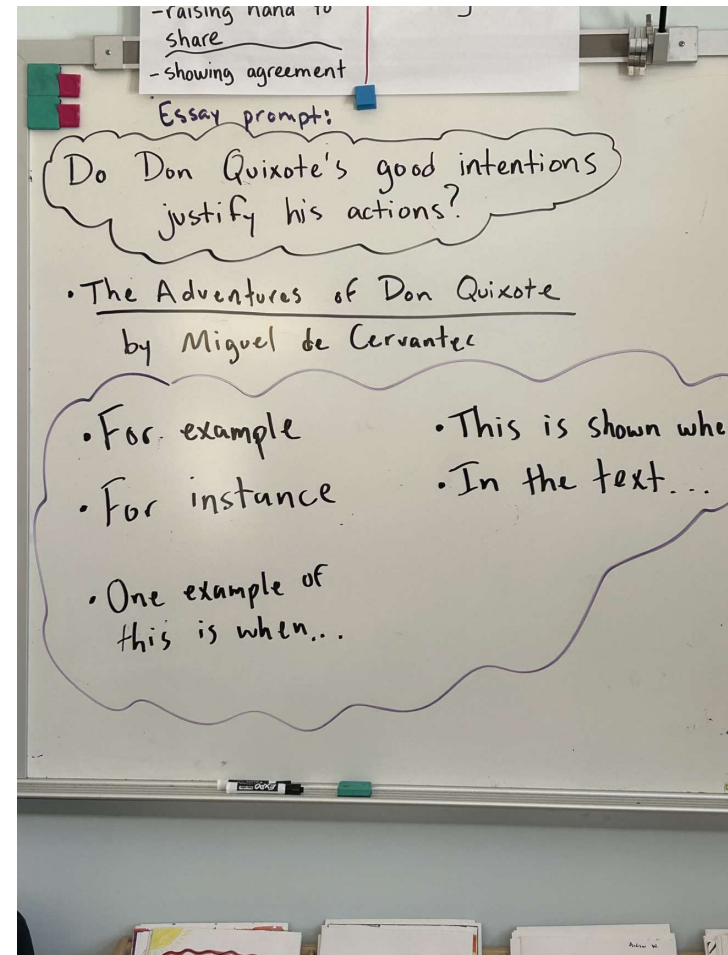 -raising hand to
share
- showing agreement
Essay prompt:
Do Don Quixote's good intentions
justify his actions?
• The Adventures of Don Quixote
by Miguel de Cervantec
• For example
• For instance
• One example of
this is when...
• This is shown whe
• In the text...
EXPO